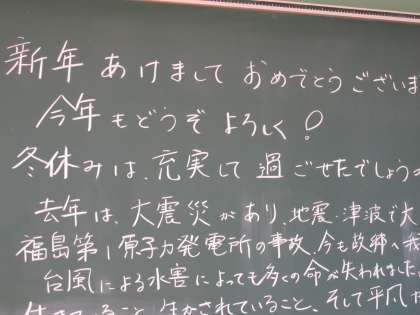 新年 あけまして おめでとうございま
今年もどうぞ よろしく!
冬休みは、充実して 過ごせたでしょうか
去年は、大震災があり、地震・津波で大
福島第1原子力発電所の事故、今も故郷へ
台風による水害によっても多くの命が失われました
いること、生かされていること、そして平凡